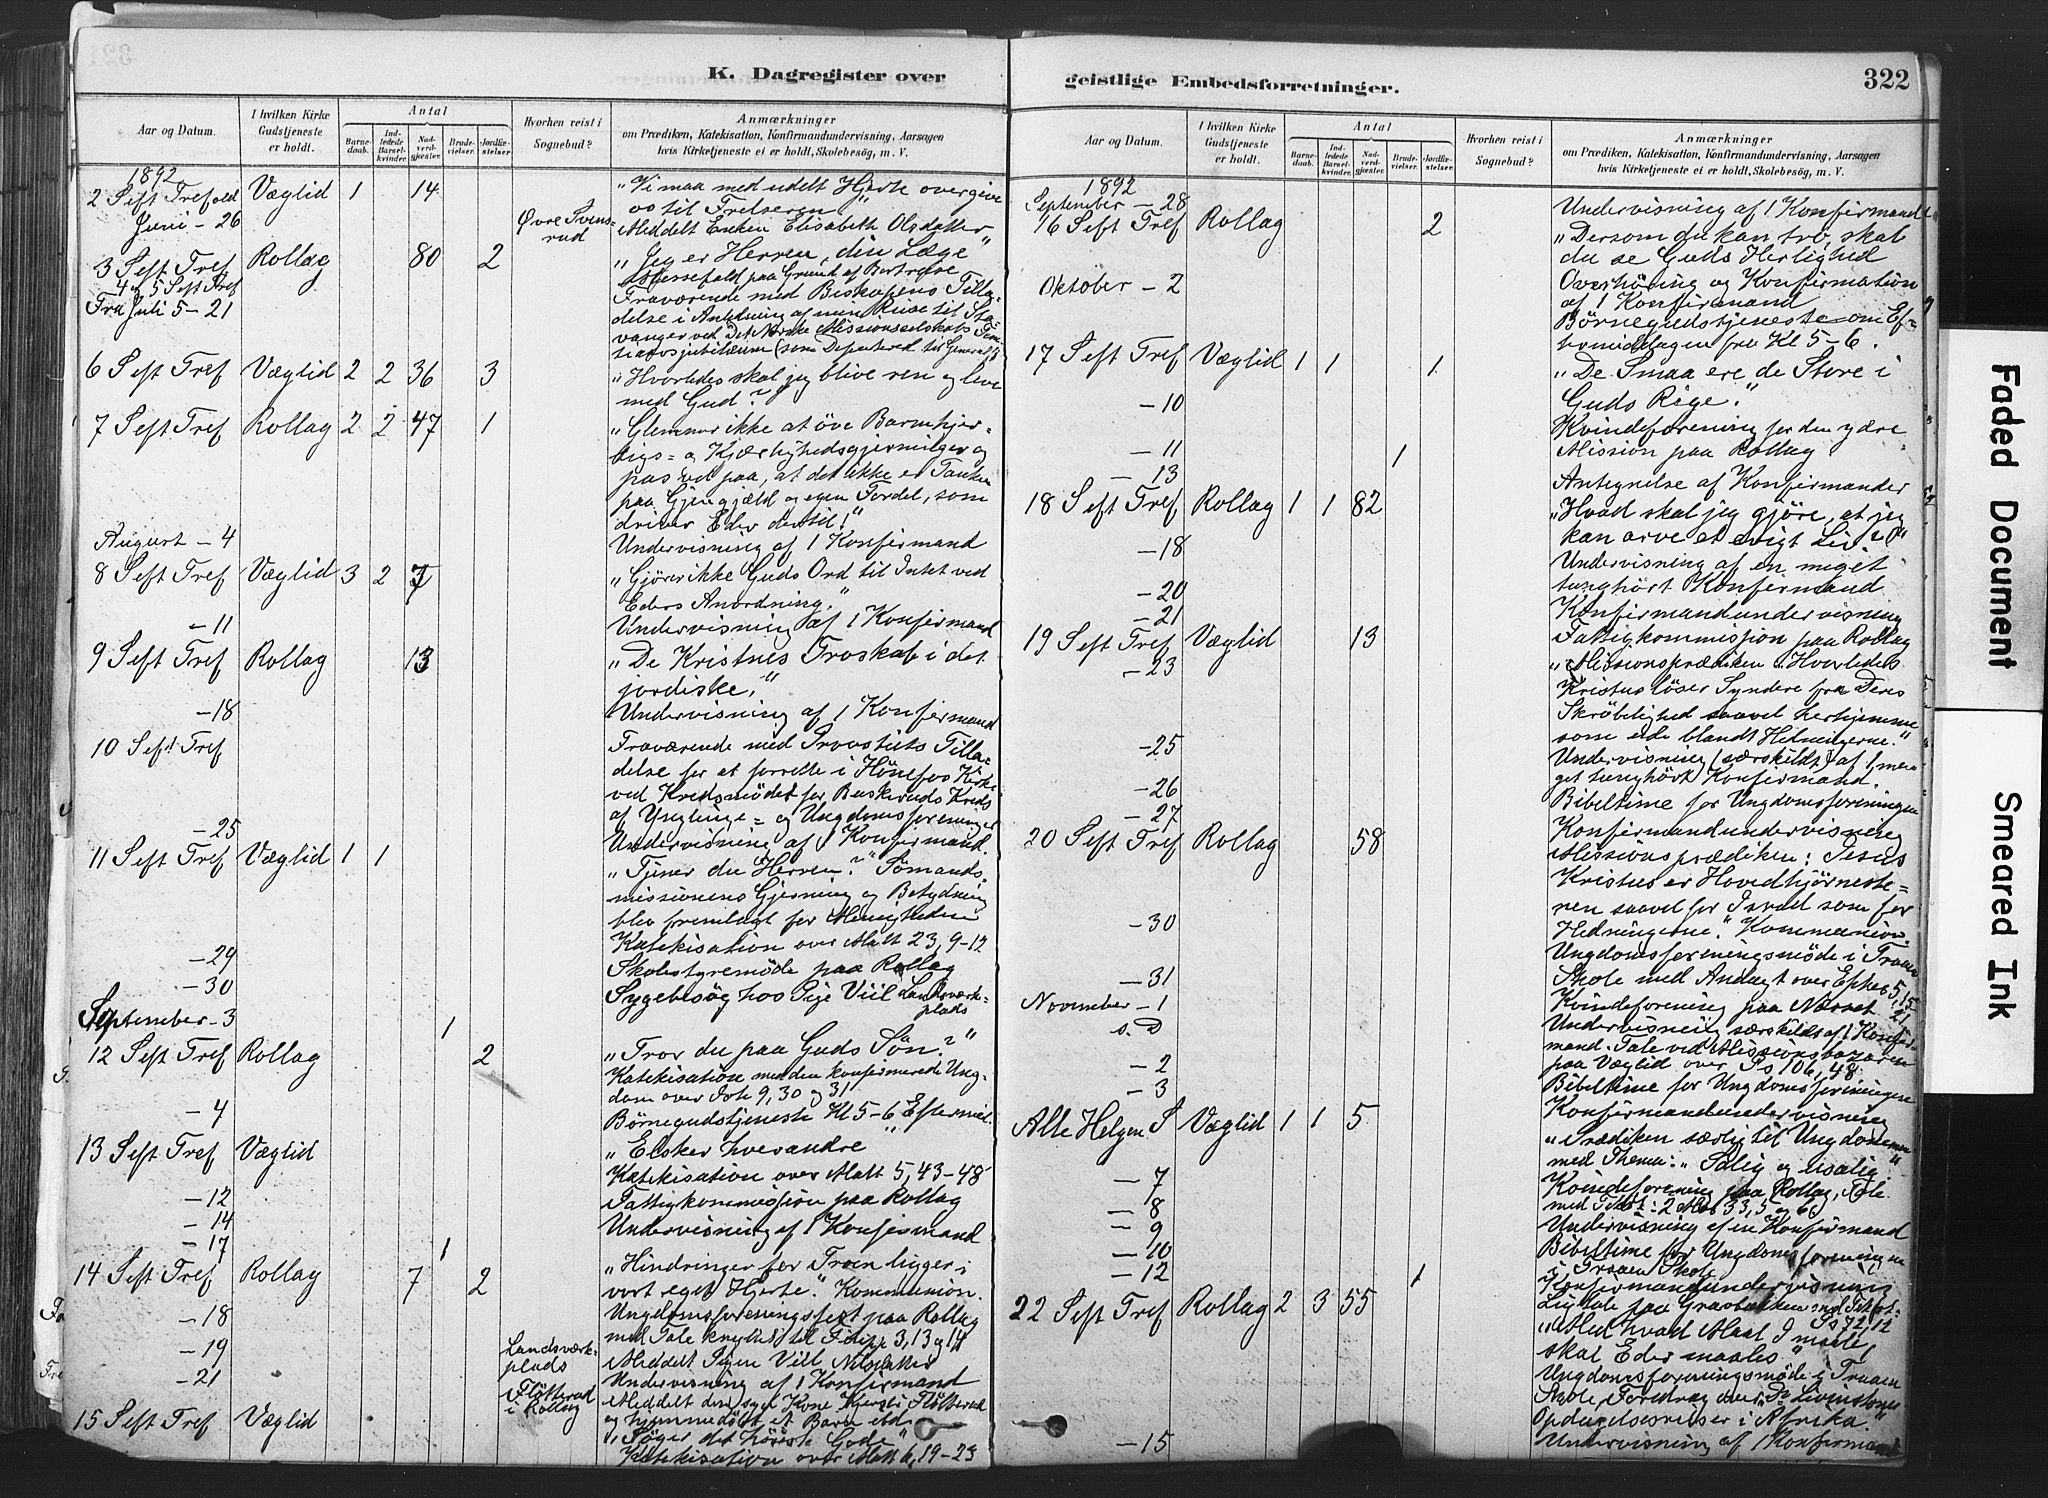 K. Dagregister over
Aar og Datum.
I hvilken Kirke Gudstjeneste er holdt.
Antal
Barne-daab.
Ind-ledede Barsel-kvinder.
Nad-verd-gjæster.
Brude-vielser.
Jordfæ-stelser.
Hvorhen reist i Sognebud?
Anmærkninger
om Prædiken, Katekisation, Konfirmandundervisning, Aarsagen
hvis Kirketjeneste ei er holdt, Skolebesøg, m. V.
1892
2 Seft Tref Væglid 1 14 „Vi maa med udelt Hjerte overgive
os til Frelseren!"
Juni - 26 Øvre Meddelt Enken Elisabeth Olsdatter
3 Seft Tref Rollag 80 2 „Jeg er Herren, din Læge"
4 og 5 Seft Tref Messefald paa Grund af Bortreise
Fra Juli 5 - 21 Fraværende med Biskopens Tilla-
delse i Anledning af min Reise til Sta-
vanger ved Det Norske Missionsselskabs
6 Seft Tref Væglid 2 2 36 3 „Hvorledes skal jeg blive ren og leve
med Gud?"
7 Seft Tref Rollag 2 2 47 1 „Glemmer ikke at öve Barmhjer-
tigs= og Kjærlighedsgjerninger og
pas vel paa, at det ikke er Tanken
paa Gjengjæld og egen Fordel, som
driver Eder dertil!"
August - 4 Undervisning af 1 Konfirmand
8 Seft Tref Væglid 3 2 7 „Gjörer ikke Guds Ord til Intet ved
Eders Anordning."
- 11 Undervisning af 1 Konfirmand
9 Seft Tref Rollag 13 „De Kristnes Troskab i det
jordiske."
- 18 Undervisning af 1 Konfirmand
10 Seft Tref Fraværende med Provstiets Tilla-
delse for at forrette i Hönefos Kirke
ved Kredsmödet for Buskeruds Kreds
af Ynglinge= og Ungdomsforeninger
- 25 Undervisning af 1 Konfirmand.
11 Seft Tref Væglid 1 1 „Tjener du Herren?" Sömands-
missionens Gjerning og Betydning
blev fremlagt for Menigheden
Katekisation over Matt 23, 9-12
- 29 Skolestyremöde paa Rollag
- 30 Sygebesög hos Sige Viil Landsværk-
plads
September - 3 1
12 Seft Tref Rollag 2 „Tror du paa Guds Sön?"
Katekisation med den konfirmerede Ung-
dom over Joh 9, 30 og 31
- 4 Börnegudstjeneste Kl 5-6 Eftermid.
13 Seft Tref Væglid „Elsker hverandre"
Katekisation over Matt 5, 43-48
- 12 Fattigkommission paa Rollag
- 14 Undervisning af 1 Konfirmand
- 17 1
14 Seft Tref Rollag 7 2 „Hindringer for Troen ligger i
vort eget Hjerte". Kommunion.
- 18 Ungdomsforeningsfest paa Rollag
med Tale knyttet til Filipp 3, 13 og 14
- 19 Landsværk-plads Meddelt Viil
- 21 Undervisning af 1 Konfirmand
Flötterud i Rollag Meddelt den syge Kone Flötterud
og hjemmedöbt et Barn
15 Seft Tref Væglid „Söger det höieste Gode"
Katekisation over Matt 6, 19-23
geistlige Embedsforretninger.
322
Aar og Datum.
I hvilken Kirke Gudstjeneste er holdt.
Antal
Barne-daab.
Ind-ledede Barsel-kvinder.
Nad-verd-gjæster.
Brude-vielser.
Jordfæ-stelser.
Hvorhen reist i Sognebud?
Anmærkninger
om Prædiken, Katekisation, Konfirmandundervisning, Aarsagen
hvis Kirketjeneste ei er holdt, Skolebesøg, m. V.
1892
September - 28 Undervisning af 1 Konfirmand
16 Seft Tref Rollag 2 „Dersom du kan tro, skal
du se Guds Herlighed
Overhöring og Konfirmation
af 1 Konfirmand
Oktober - 2 Börnegudstjeneste om Ef-
termiddagen fra Kl 5-6.
17 Seft Tref Væglid 1 1 1 „De Smaa ere de Store i
Guds Rige."
- 10 Kvindeforening for den ydre
Mission paa Rollag
- 11 1
- 13 Antegnelse af Konfirmander
18 Seft Tref Rollag 1 1 82 „Hvad skal jeg gjöre, at jeg
kan arve et evigt Liv?"
- 18 Undervisning af en meget
tunghört Konfirmand
- 20 Konfirmandundervisning
- 21 Fattigkommisjon paa Rollag
19 Seft Tref Væglid 13 „Missionsprædiken: Hvorledes
- 23 Kristus löser Syndere fra Deres
Skröbelighed saavel herhjemme
som ude blandt Hedningerne."
- 25 Undervisning (særskildt) af 1 me-
get tunghört Konfirmand.
- 26 Bibeltime for Ungdomsforeningen
- 27 Konfirmandundervisning
20 Seft Tref Rollag 58 Missionsprædiken: Jesus
Kristus er Hovedhjörneste=
nen saavel for Israel som for
Hedningerne". Kommunion.
- 30 Ungdomsforeningsmöde i Traaen
Skole med Andagt over Ephes 5, 15-21
- 31 Kvindeforening paa Næsset
November - 1 Undervisning særskildt af 1 Konfir-
s. D mand. Tale ved Missionsbazaren
paa Væglid over Ps 106, 48
- 2 Bibeltime for Ungdomsforeningen
- 3 Konfirmandundervisning
Alle Helgen S Væglid 1 1 5 „Prædiken særlig til Ungdommen
med Thema: „Salig og usalig"
- 7 Kvindeforening paa Rollag, Tale
med Text: 2 Mos 33, 5 og 6
- 8 Undervisning af en Konfirmand
- 9 Bibeltime for Ungdomsforeningen
i Traaen Skole
- 10 Konfirmandundervisning
- 12 1 Ligtale paa Gravbakken med Text
Ps 72, 12
22 Seft Tref Rollag 2 3 55 „Med hvad Maal I maale,
skal Eder maales"
Ungdomsforeningsmöde i Traaen
Skole, Foredrag over „Dr Livinstones
Opdagelsesreiser i Afrika."
- 15 Undervisning af 1 Konfirmand
Faded Document
Smeared Ink